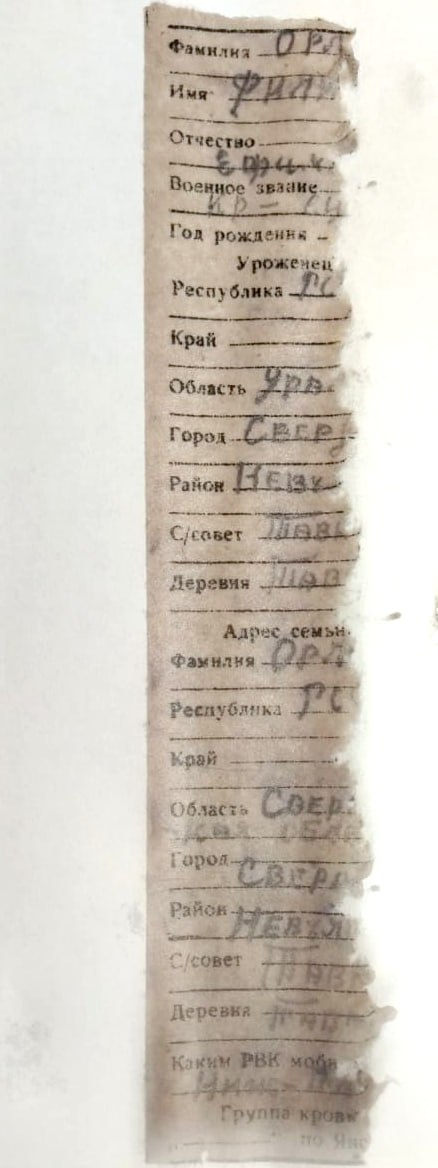 Фамилия ОРЛ
Имя ФИЛИ
Отчество
Ефи
Военное звание
кр-
Год рождения
Уроженец
Республика РС
Край
Область УРА
Город СВЕР
Район НЕВЬ
С/совет ШАВ
Деревня ШАВ
Адрес семьи
Фамилия ОРЛ
Республика РС
Край
Область СВЕР
КАЯ ОБЛА
Город
СВЕР
Район НЕВ
С/совет ШАВ
Деревня
Каким РВК моби
НИЖ-
Группа крови
по Янс